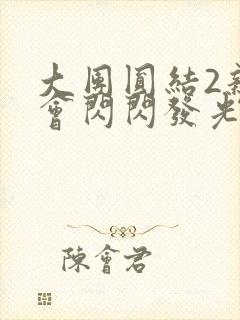 大團圓結2
會閃閃發光
陳會君